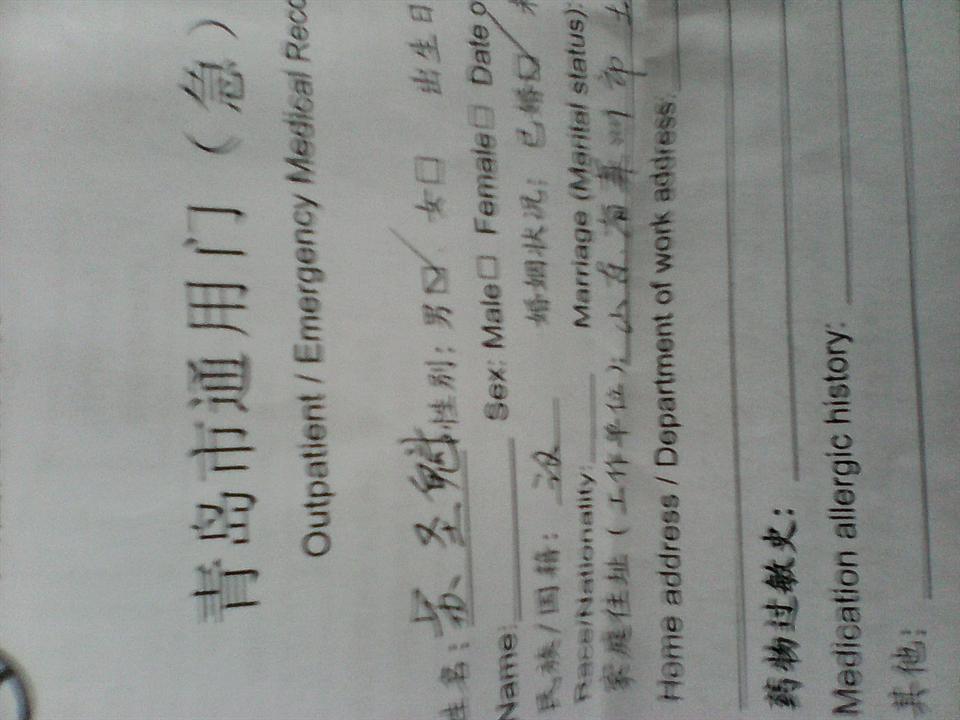 青岛市通用门（急）
Outpatient / Emergency Medical Reco
姓名：苏圣魁 性别：男☑ 女□ 出生日
Name: Sex: Male□ Female□ Date o
民族/国籍：汉 婚姻状况：已婚☑ 未
Race/Nationality: Marriage (Marital status):
家庭住址（工作单位）：山东省莱州市土
Home address / Department of work address:
药物过敏史：
Medication allergic history:
其他：